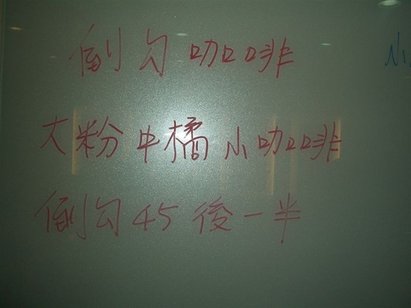 倒勾咖啡
大粉中橘小咖啡
倒勾45後一半